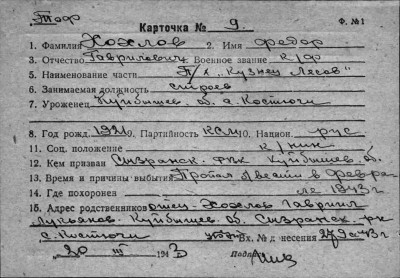 Ф. №1
Карточка № 9.
1. Фамилия Хохлов 2. Имя Федор
3. Отчество Гаврилович Военное звание к/ф
5. Наименование части П/х "Кузнец Лесов"
6. Занимаемая должность строев
7. Уроженец Куйбышев. об. с. Костычи
8. Год рожд. 1921 9. Партийность КСМ 10. Национ. рус
11. Соц. положение к/ник
12. Кем призван Сызранск. РВК Куйбышев. об.
13. Время и причины выбытия Пропал б/вести в февра-
14. Где похоронен ле 1943 г
15. Адрес родственников отец - Хохлов Гаврил
Лукьянов. Куйбышев. об. Сызранск. р-н
с. Костычи
20 III 1943 Вх. № донесения
Подпись